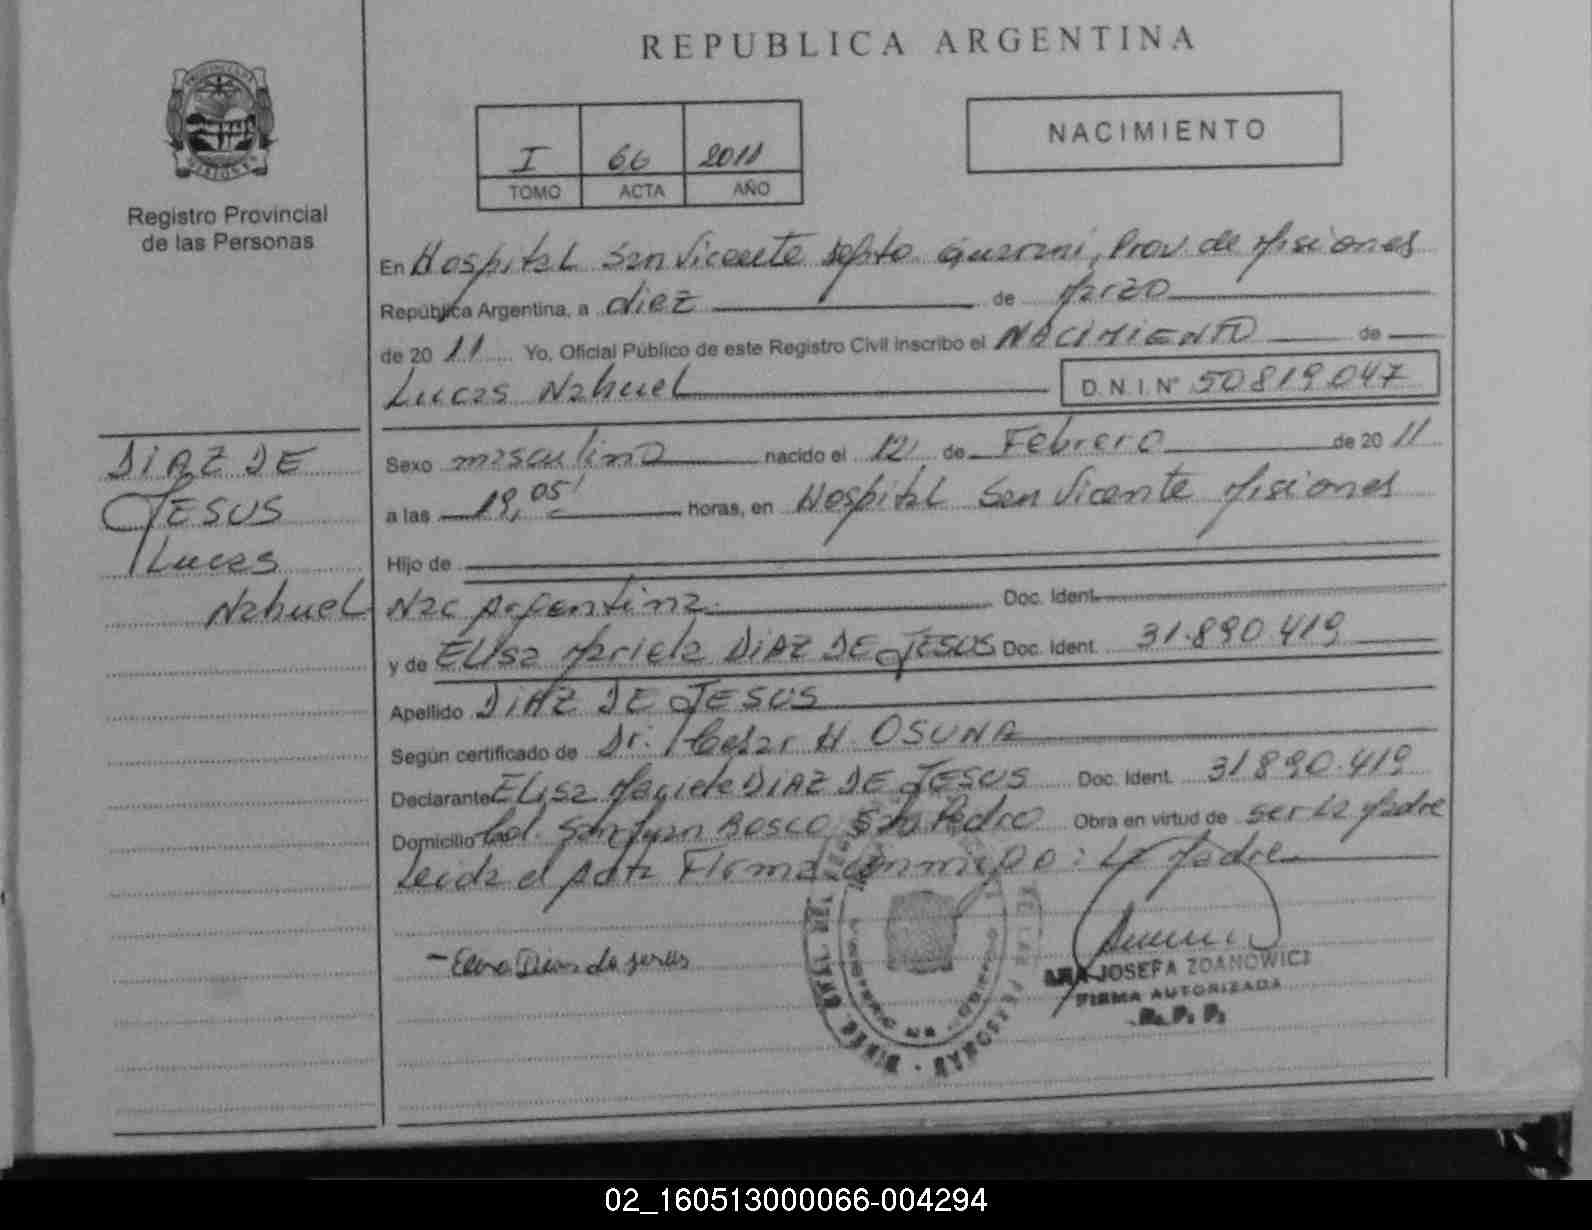 REPUBLICA ARGENTINA
Registro Provincial
de las Personas
I 66 2011
TOMO ACTA AÑO
NACIMIENTO
En Hospital San Vicente Depto. Guarani, Prov. de Misiones
República Argentina, a diez de Marzo
de 20 11 Yo, Oficial Público de este Registro Civil inscribo el NACIMIENTO de
Lucas Nahuel D. N. I. Nº 50819047
DIAZ DE
JESUS
Lucas
Nahuel
Sexo masculino nacido el 12 de Febrero de 20 11
a las 05 horas, en Hospital San Vicente Misiones
Hijo de
Nac Argentina Doc. Ident.
y de Elisa Mariela DIAZ DE JESUS Doc. Ident. 31.890.419
Apellido DIAZ DE JESUS
Según certificado de Dr. Cesar H. OSUNA
Declarante Elisa Mariela DIAZ DE JESUS Doc. Ident. 31890.419
Domicilio Col. San Juan Bosco San Pedro Obra en virtud de ser la Madre
Leida el Acta Firma conmigo: La Madre
JOSEFA ZDANOWICZ
FIRMA AUTORIZADA
R. P. P.
02_160513000066-004294